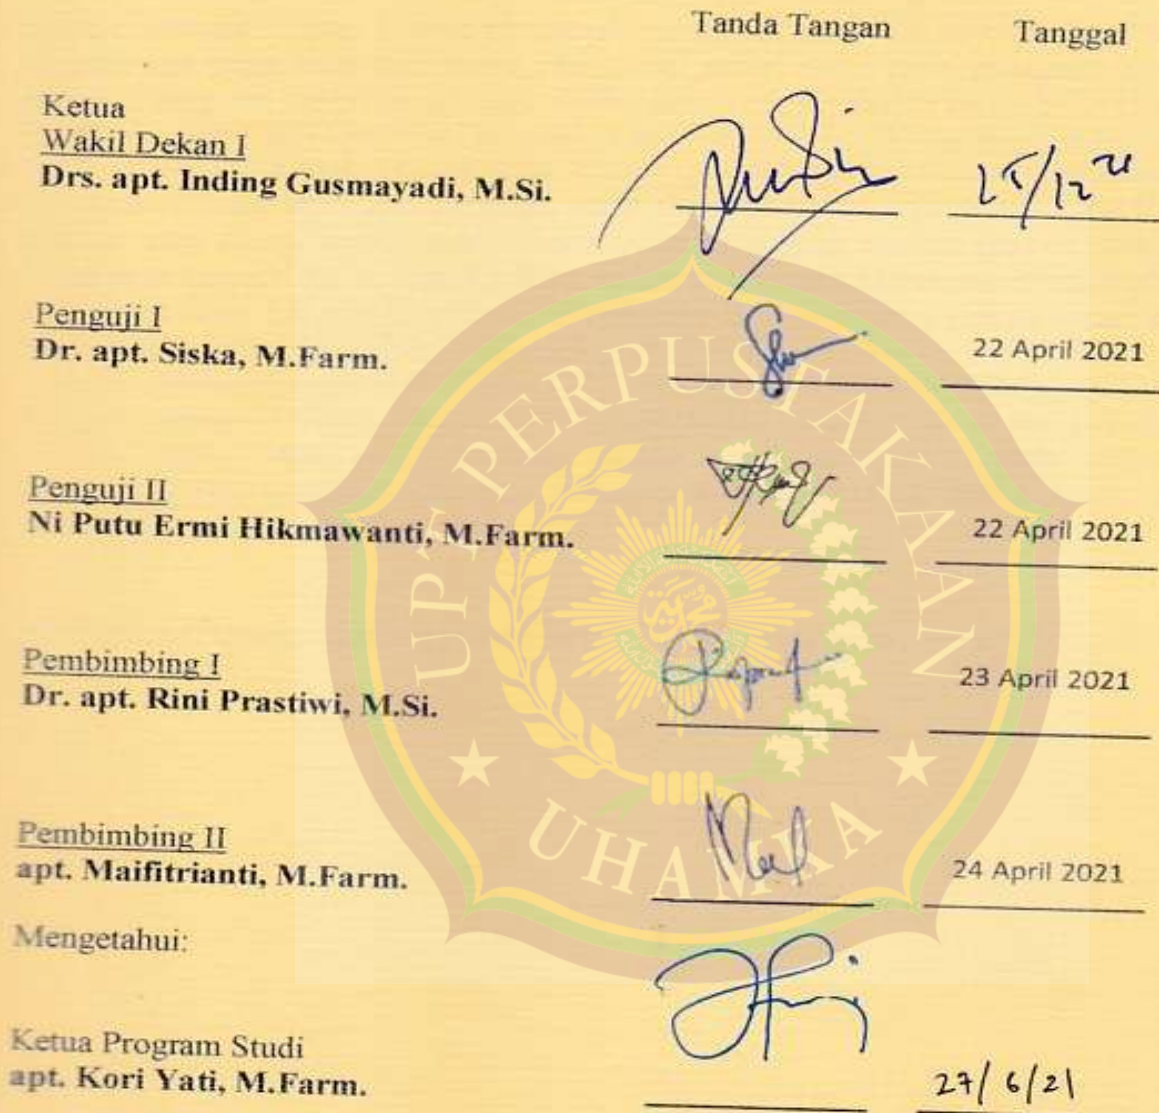 Tanda Tangan Tanggal
Ketua
Wakil Dekan I
Drs. apt. Inding Gusmayadi, M.Si.
25/12 21
Penguji I
Dr. apt. Siska, M.Farm.
22 April 2021
Penguji II
Ni Putu Ermi Hikmawanti, M.Farm.
22 April 2021
Pembimbing I
Dr. apt. Rini Prastiwi, M.Si.
23 April 2021
Pembimbing II
apt. Maifitrianti, M.Farm.
24 April 2021
Mengetahui:
Ketua Program Studi
apt. Kori Yati, M.Farm.
27/6/21
UPT PERPUSTAKAAN
UHAMKA